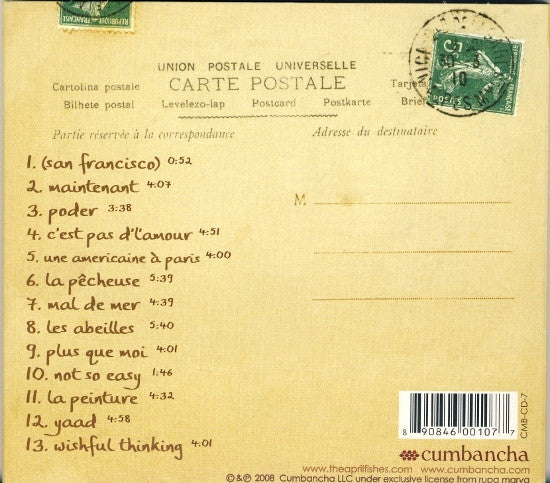 REPUBLIQUE FRANÇAISE
UNION POSTALE UNIVERSELLE
CARTE POSTALE
Cartolina postale
Bilhete postal
Levelezo-lap Postcard Postkarte
Tarjeta
Brie
Partie réservée à la correspondance
Adresse du destinataire
30 3
10
POSTES
M
1. (san francisco) 0:52
2. maintenant 4:07
3. poder 3:38
4. c'est pas d'l'amour 4:51
5. une americaine à paris 4:00
6. la pêcheuse 5:39
7. mal de mer 4:39
8. les abeilles 5:40
9. plus que moi 4:01
10. not so easy 1:46
11. la peinture 4:32
12. yaad 4:58
13. wishful thinking 4:01
8 90846 00107 7
CMB-CD-7
cumbancha
www.theaprilfishes.com www.cumbancha.com
© & ℗ 2008 Cumbancha LLC under exclusive license from rupa marya